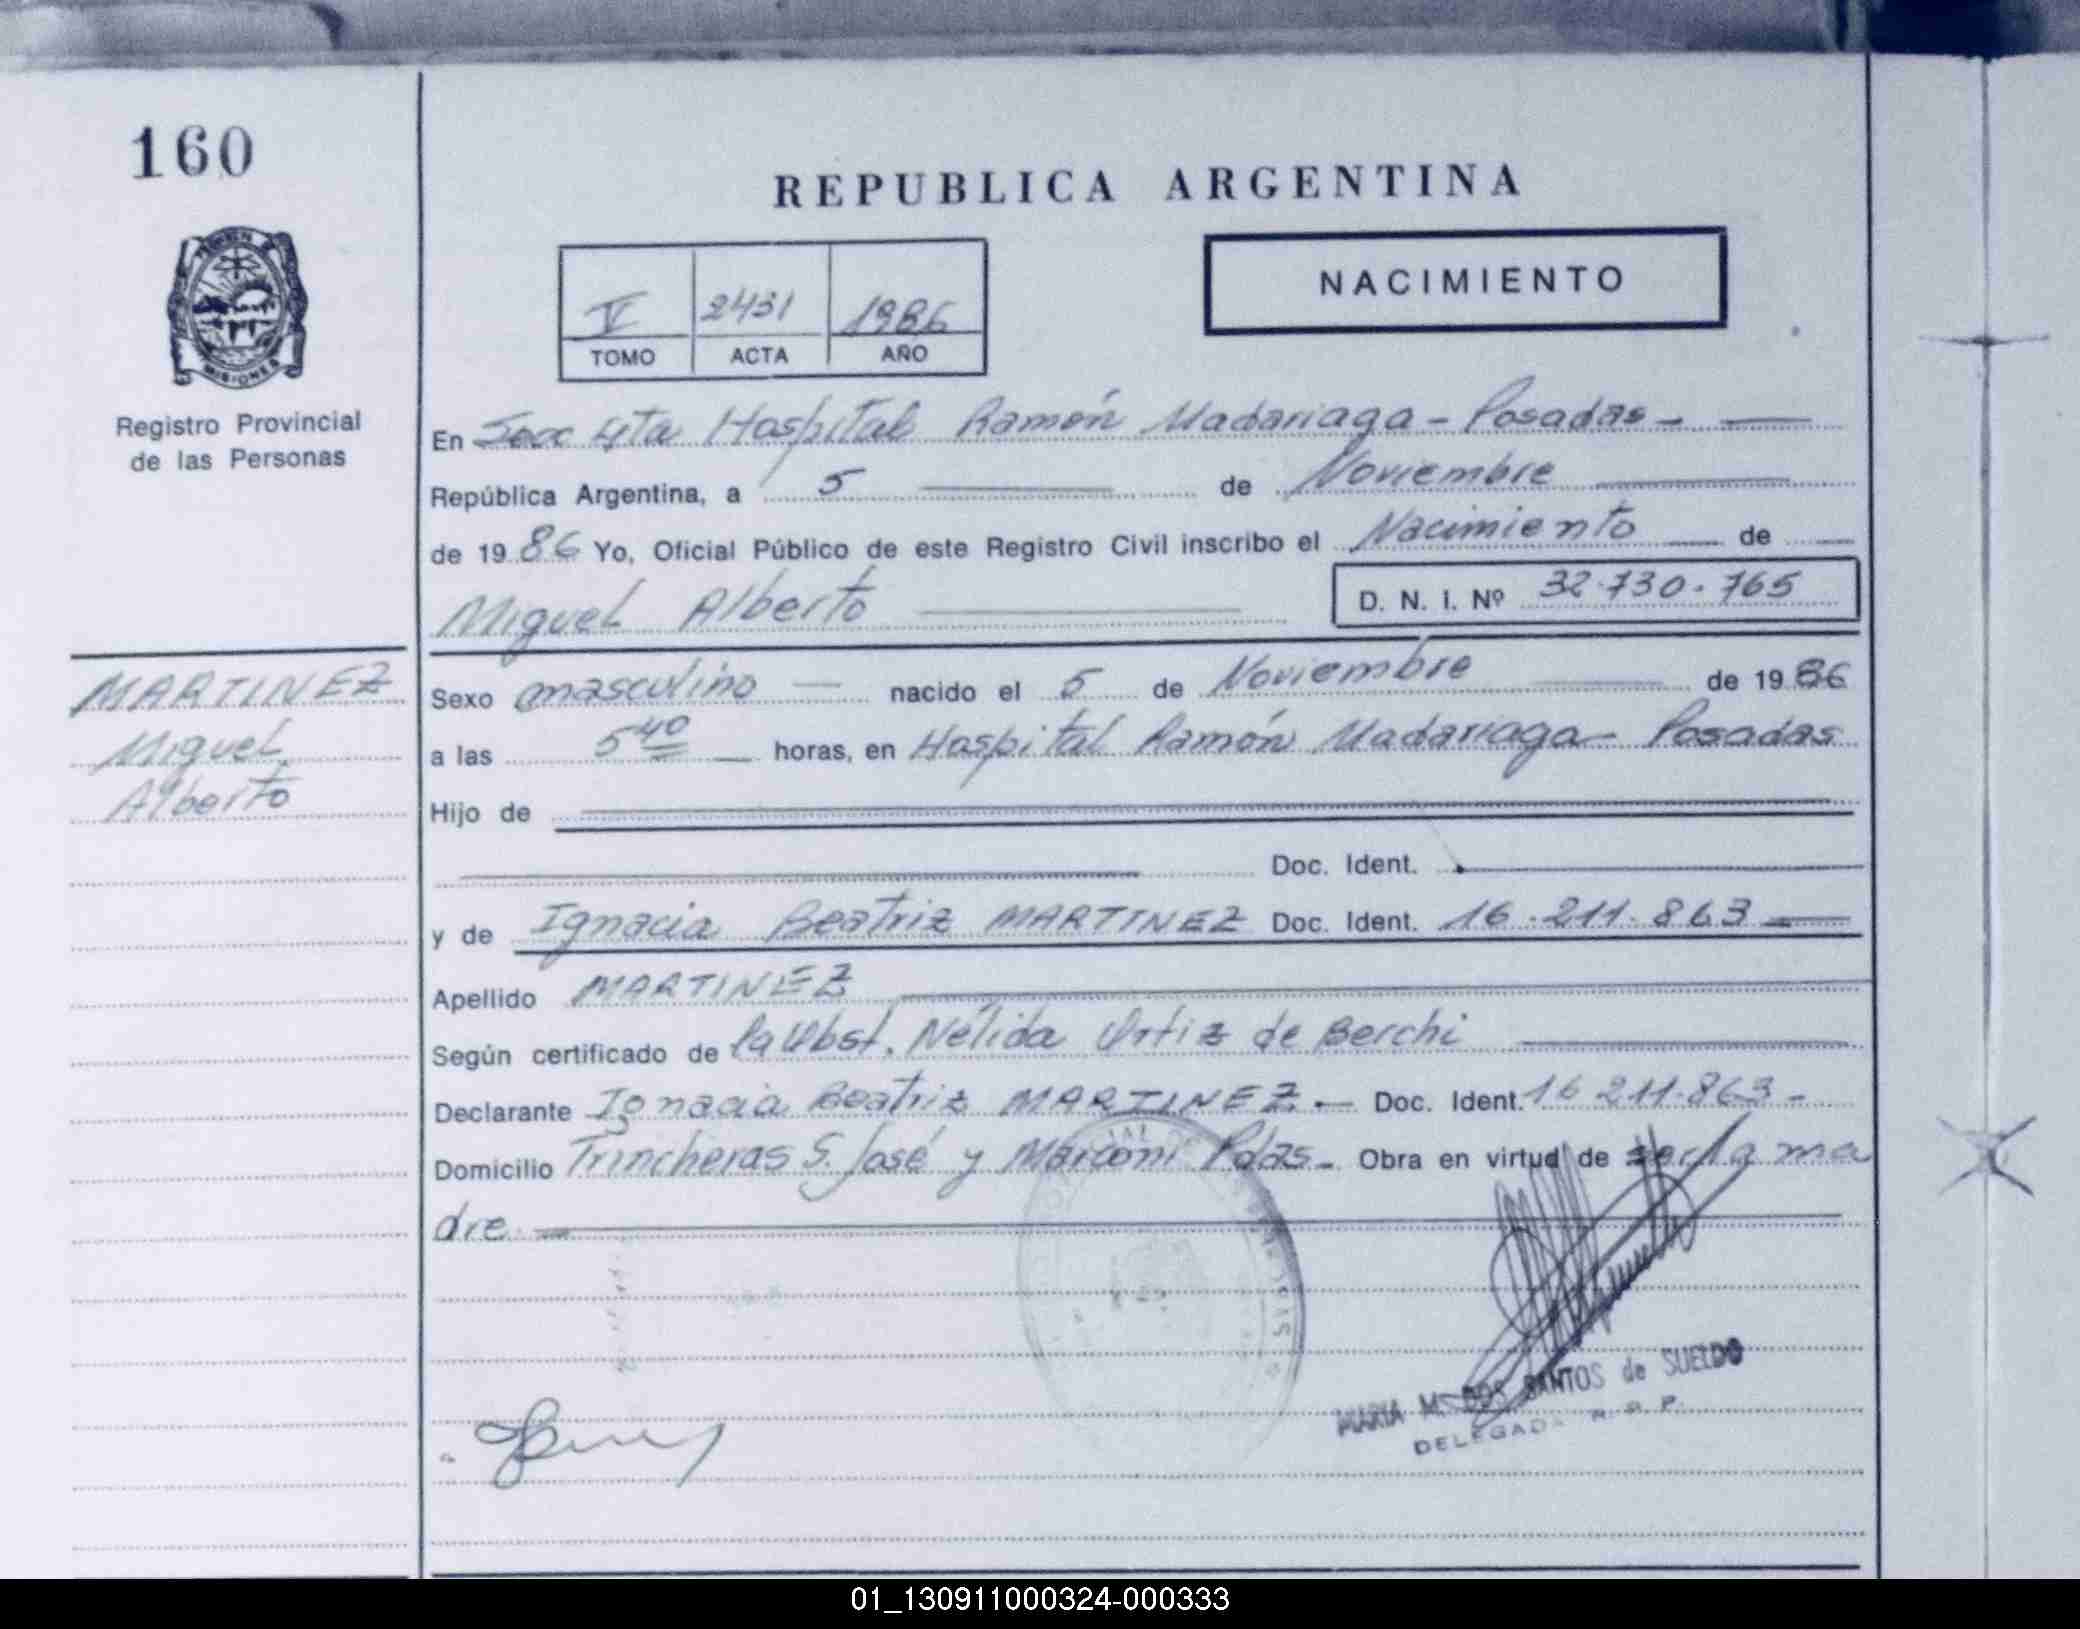 160
REPUBLICA ARGENTINA
NACIMIENTO
V 2431 1986
TOMO ACTA AÑO
MISIONES
Registro Provincial
de las Personas
En Secc 4ta Hospital Ramón Madariaga - Posadas -
República Argentina, a 5 de Noviembre
de 1986 Yo, Oficial Público de este Registro Civil inscribo el Nacimiento de
Miguel Alberto D. N. I. Nº 32.730.765
MARTINEZ
Miguel
Alberto
Sexo masculino nacido el 5 de Noviembre de 1986
a las 5 40 horas, en Hospital Ramón Madariaga - Posadas
Hijo de
Doc. Ident.
y de Ignacia Beatriz MARTINEZ Doc. Ident. 16.211.863
Apellido MARTINEZ
Según certificado de la Obst. Nélida Ortiz de Berchi
Declarante Ignacia Beatriz MARTINEZ.- Doc. Ident. 16 211.863 -
Domicilio Trincheras S. José y Marconi Pdas - Obra en virtud de ser la ma
dre.
MARIA M. DOS SANTOS de SUELDO
DELEGADA R. P.
01_130911000324-000333